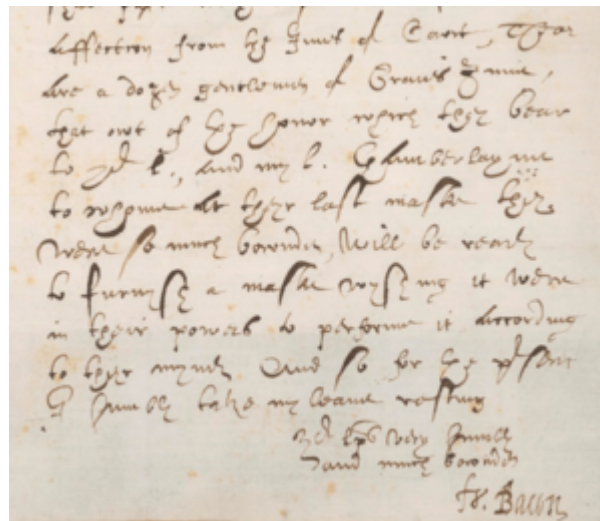 affection from the Innes of Court, Thear
are a dozen gentlemen of Graies Inne,
that owt of the honor which they bear
to yr l., and my l. Chamberlayne
to whome at theyr last maske they
were so much bownde, will be ready
to furnish a maske wyshing it were
in their powers to performe it according
to their myndes And so for the pſent
I humbly take my leaue resting
yr lps very humbly
and much bownden
Fr. Bacon